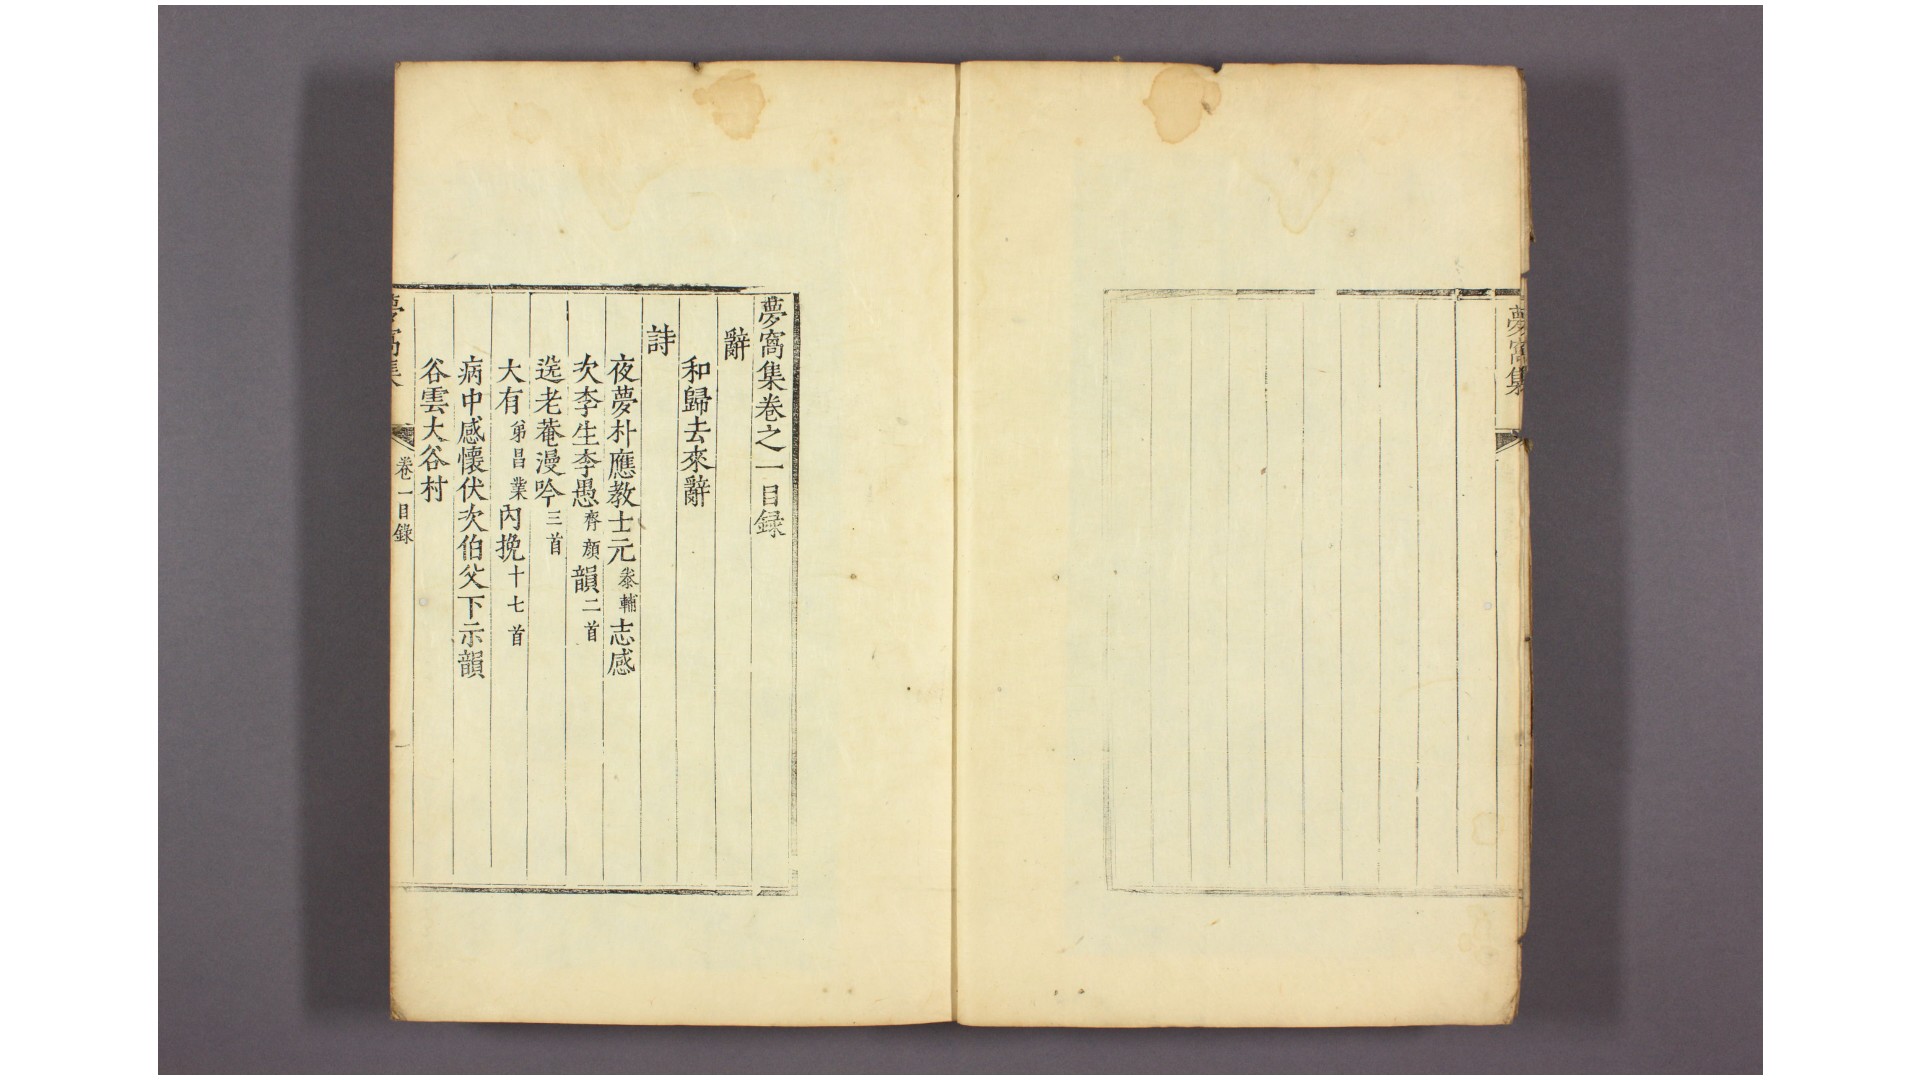 夢窩集
夢窩集卷之一目録
辭
和歸去來辭
詩
夜夢朴應教士元泰輔志感
次李生李愚齊顔韻二首
送老菴漫吟三首
大有弟昌業內挽十七首
病中感懷伏次伯父下示韻
谷雲大谷村
夢窩集
卷一目錄
一